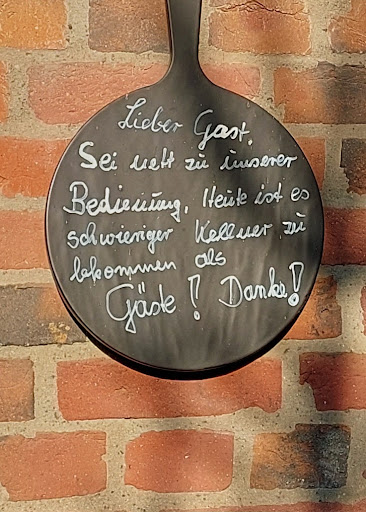 Lieber Gast,
Sei nett zu unserer
Bedienung, Heute ist es
schwieriger Kellner zu
bekommen als
Gäste! Danke!